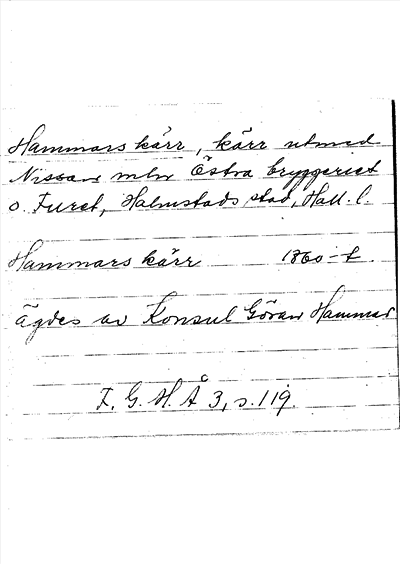 Hammars kärr, kärr utmed
Nissan mlw Östra bryggeriet
o. Furet, Halmstads stad, Hall. l.
Hammars kärr 1860-t.
ägdes av Konsul Göran Hammar
F. G. H. Å 3, s. 119.